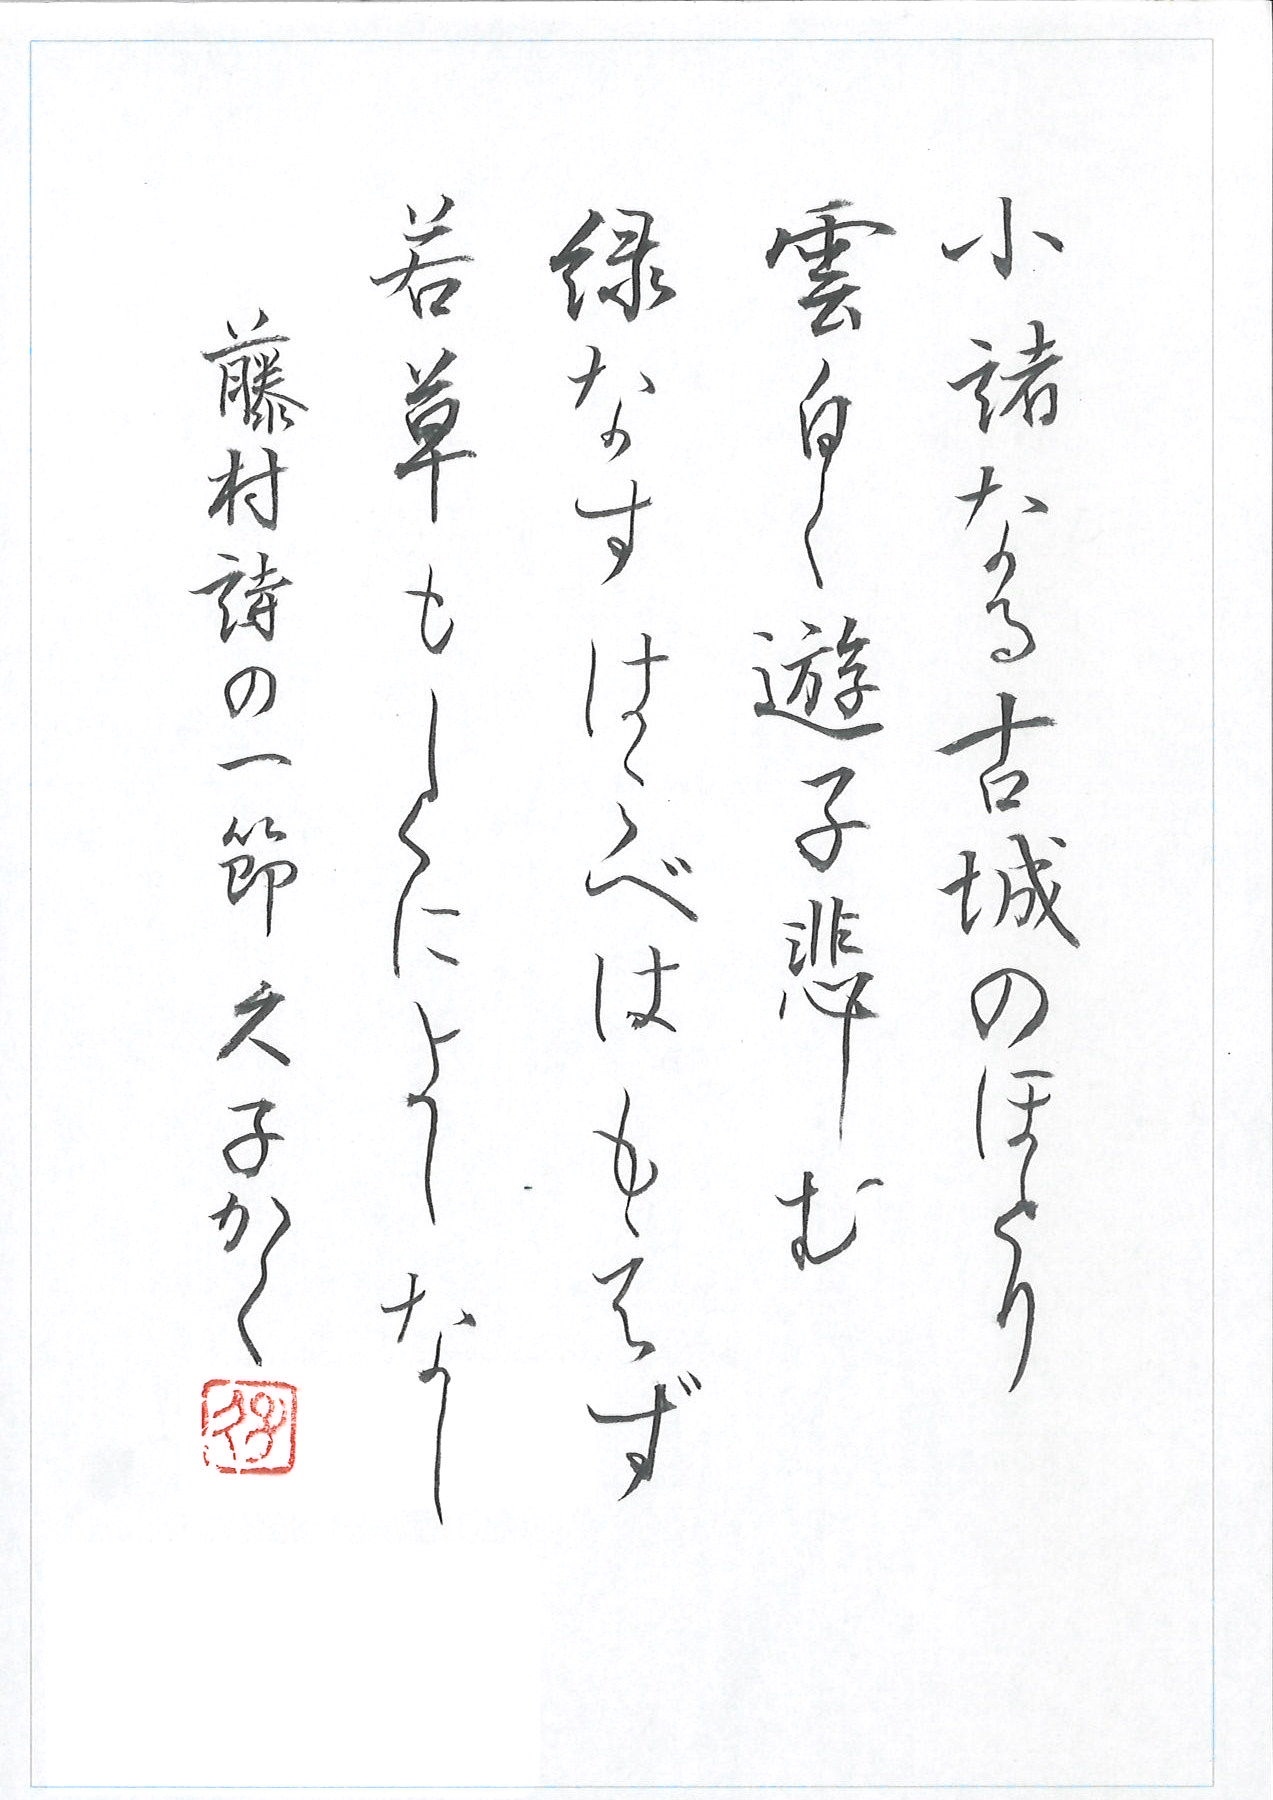 小諸なる古城のほとり
雲白く遊子悲しむ
緑なすはこべはもえず
若草もしくによしなし
藤村詩の一節 久子かく
久子